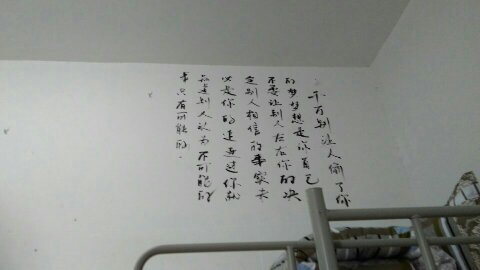 千万别让人偷了你
的梦梦想是你自己
不要让别人左右你的决
定别人相信的事实未
必是你的追逐这你就
知道别人认为不可能的
事只有可能的.